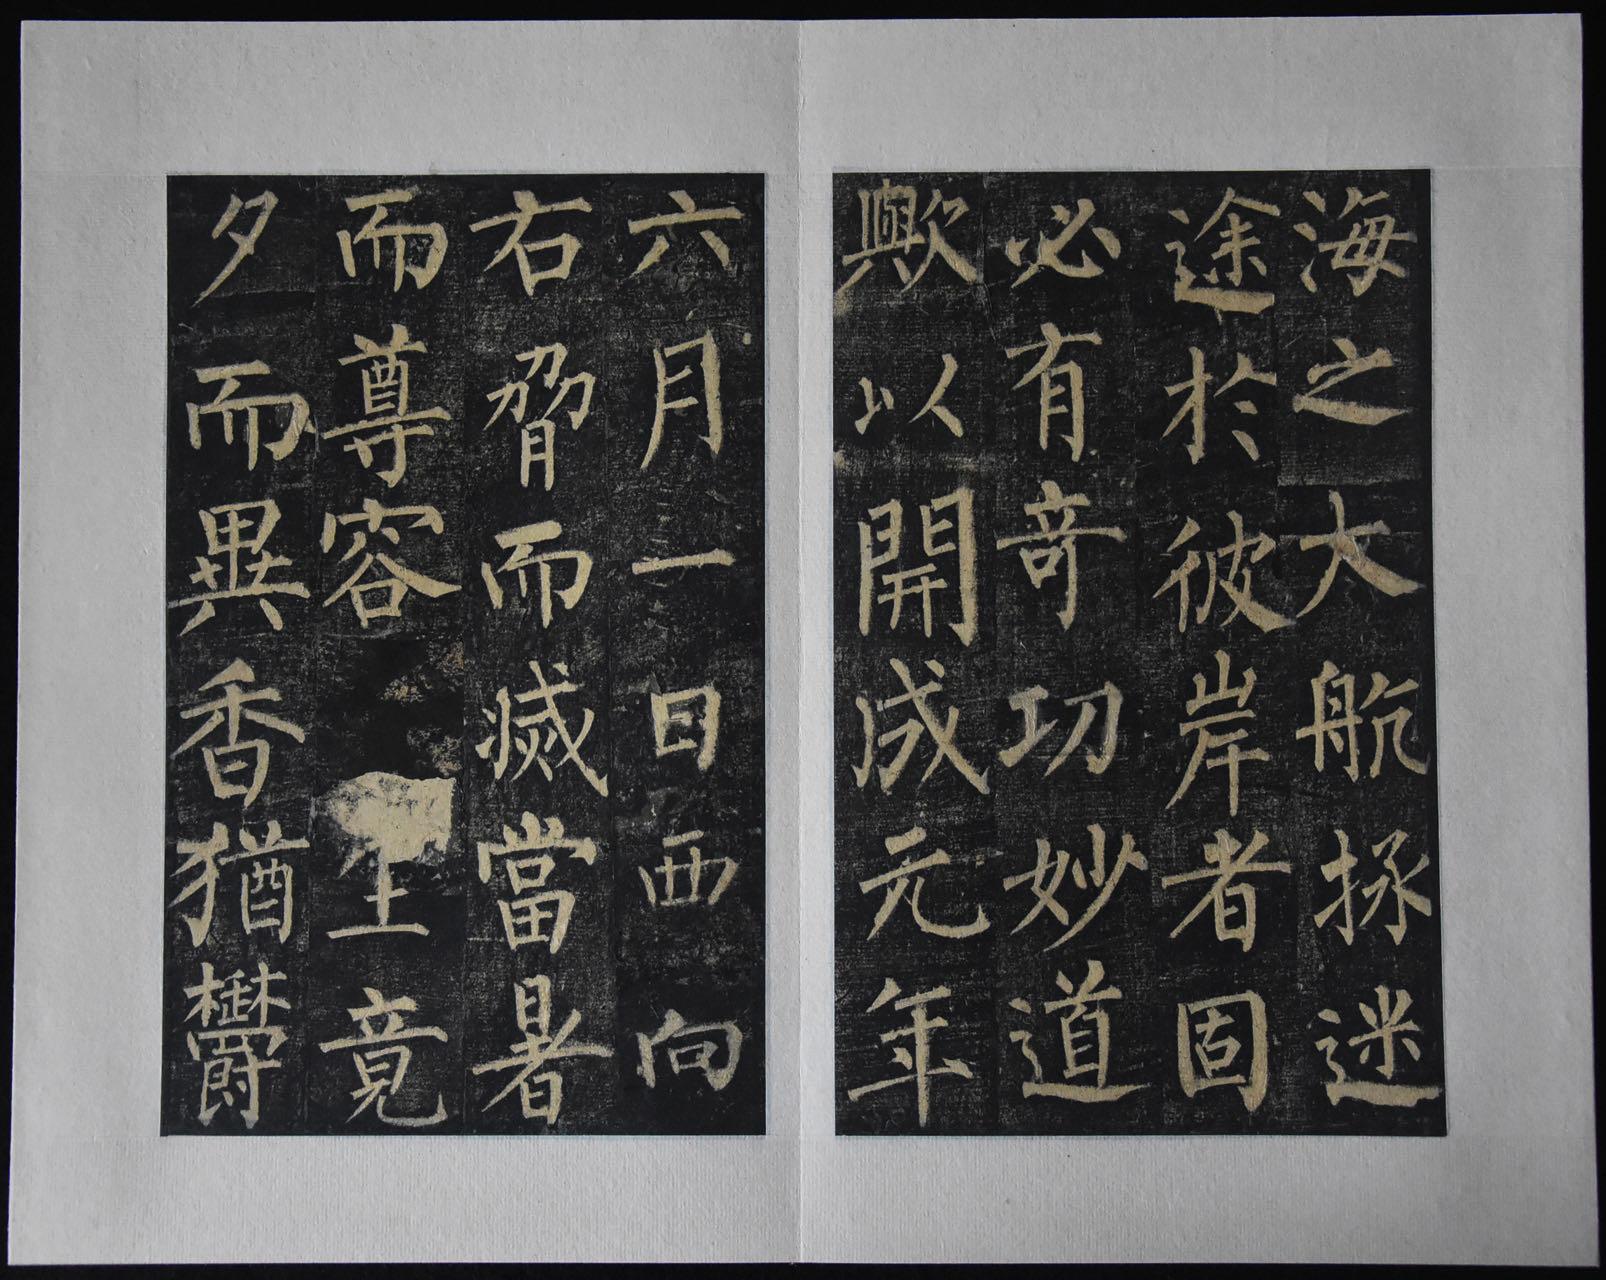 海之大航拯迷
途於彼岸者固
必有奇功妙道
歟以開成元年
六月一日西向
右脅而滅當暑
而尊容上竟
夕而異香猶欝